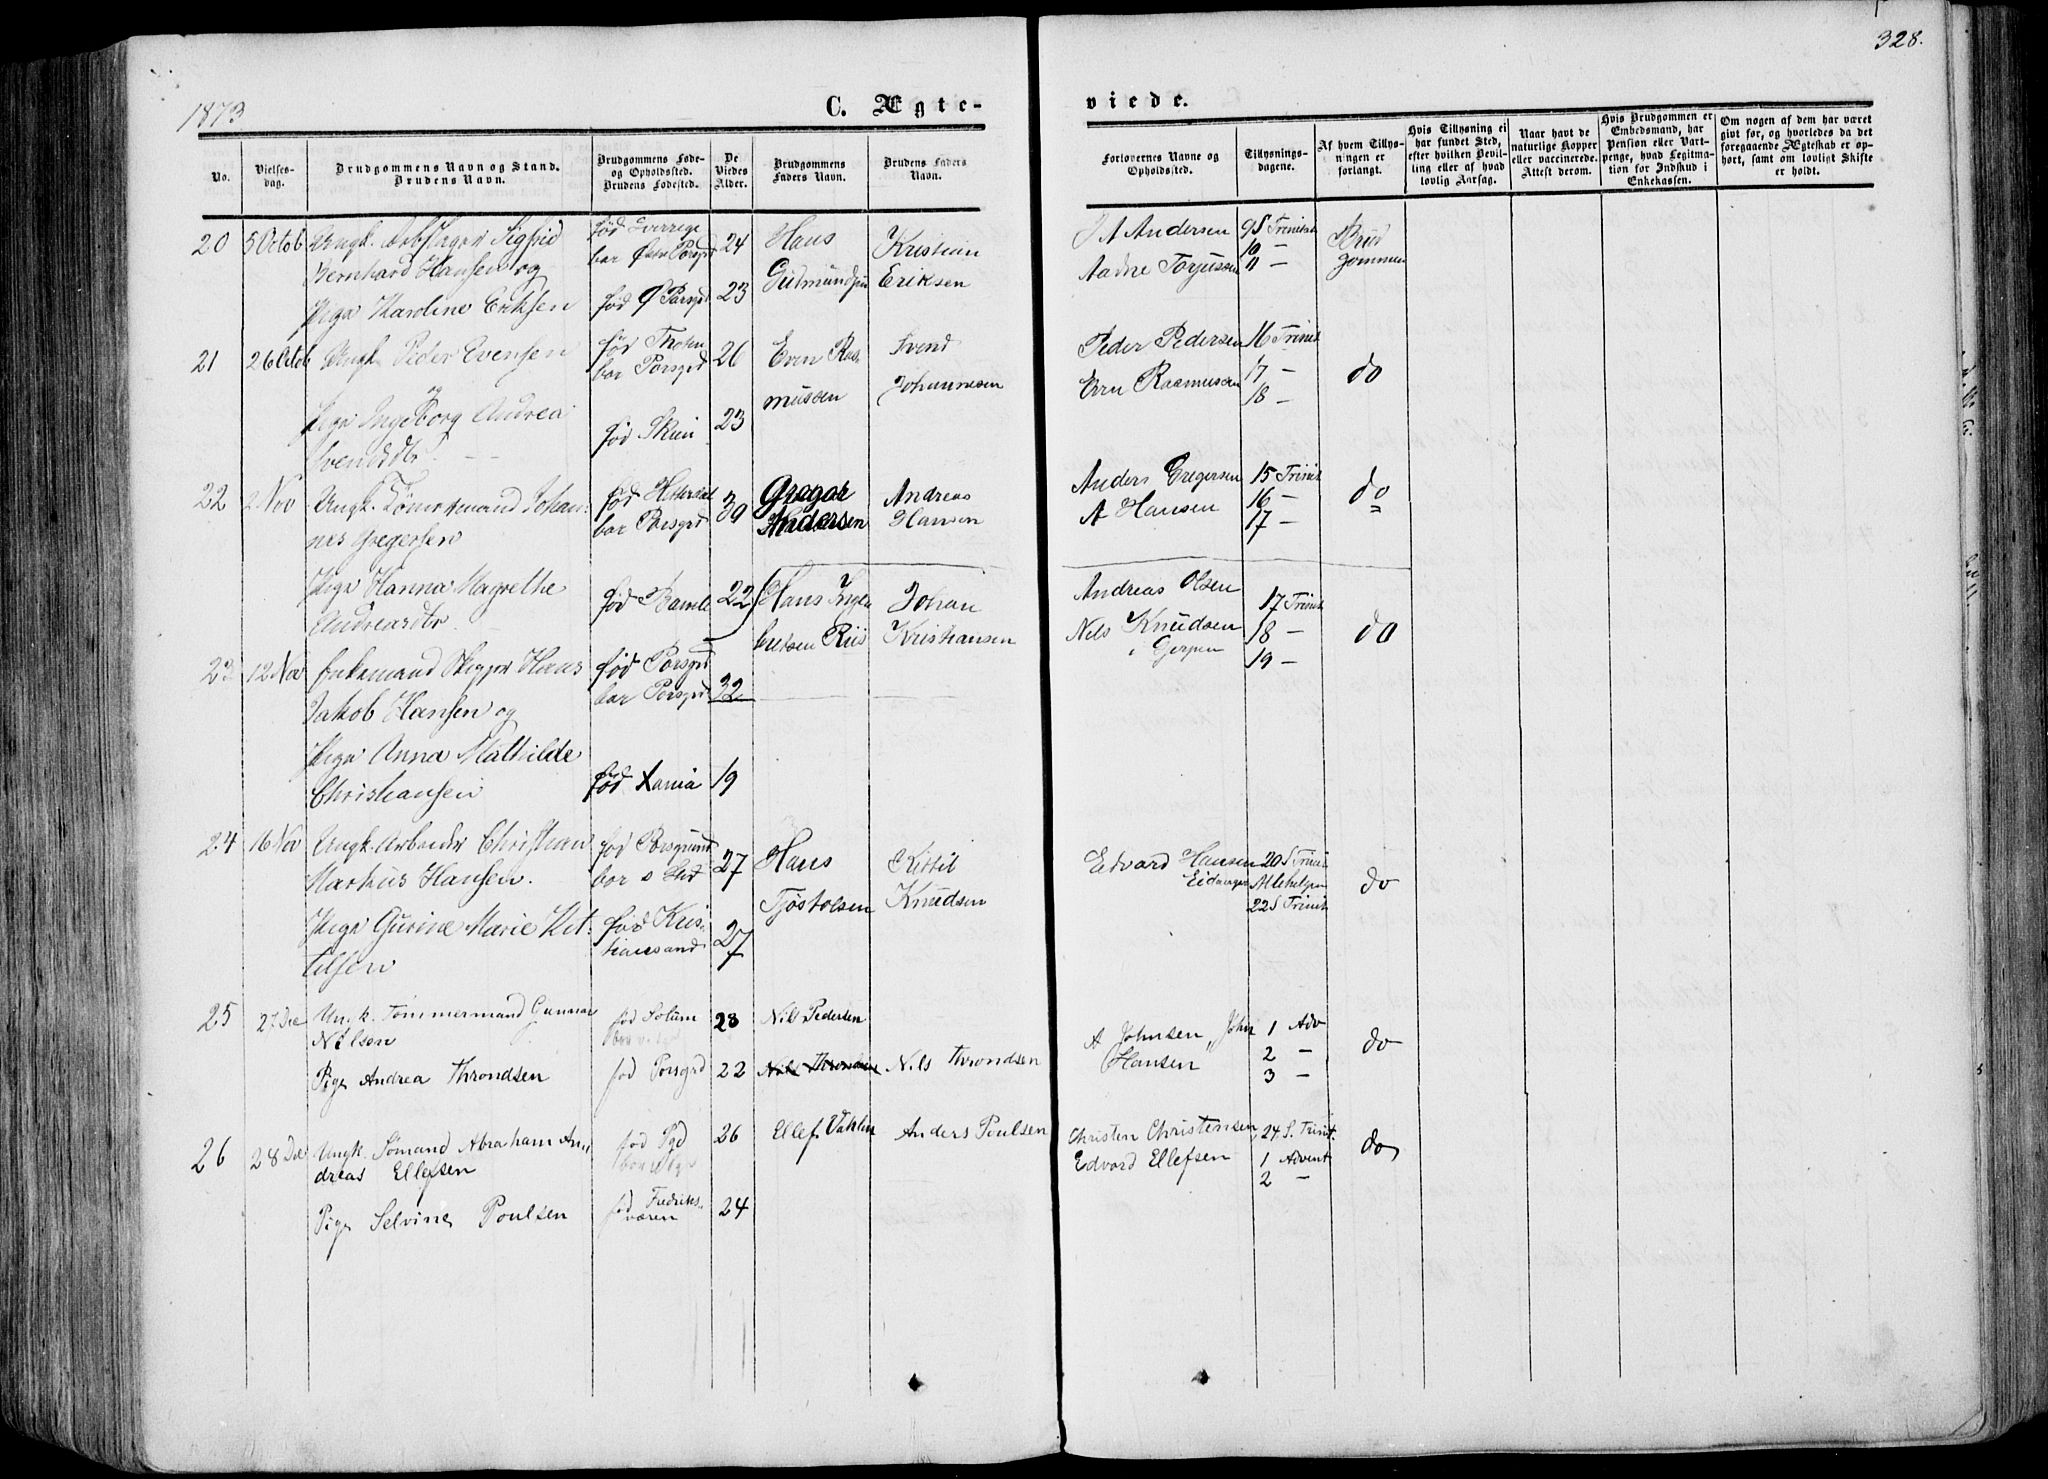 328.
1873
C. Ægte-
viede.
No.
Vielses-dag.
Brudgommens Navn og Stand.
Brudens Navn.
Brudgommens Føde-
og Opholdssted.
Brudens Fødested.
De
Viedes
Alder.
Brudgommens
Faders Navn.
Brudens Faders
Navn.
Forlovernes Navne og
Opholdssted.
Tillysnings-
dagene.
Af hvem Tillys-
ningen er
forlangt.
Hvis Tillysning ei
har fundet Sted,
efter hvilken Bevil-
ling eller af hvad
lovlig Aarsag.
Naar havt de
naturlige Kopper
eller vaccinerede.
Attest derom.
Hvis Brudgommen er
Embedsmand, har
Pension eller Vart-
penge, hvad Legitma-
tion for Indskud i
Enkekassen.
Om nogen af dem har været
givt før, og hvorledes da det
foregaaende Ægteskab er op-
hørt, samt om lovligt Skifte
er holdt.
20 5 Octob Ungk. Sigfrid
Bernhard Hansen og
Pige Karoline Eriksen
fød Sverrige
bor Østre Porsgrd
fød Ø Porsgrd
24
23
Hans
Gudmundsen
Kristian
Eriksen
J A Andersen
Aadne Torjussen
9 S Trinitat
10 —
11 —
Brud
gommen
21 26 Octob Ungk. Peder Evensen
og
Pige Ingeborg Andrea
Svendsdtr.
bor Porsgrd
fød Skien
26
23
Even Ras
mussen
Svend
Johannesen
Peder Pedersen
Even Rasmussen
16 Trinit
17 —
18 —
do
22 2 Nov Ungk. Tømmermand Johan-
nes Gregersen
Pige Hanna Magrethe
Andreasdtr.
fød Hitterdal
bor Porsgrd
fød Bamle
39
22
Gregar
Andersen
Andreas
Hansen
Anders Gregersen
A Hansen
15 Trinit
16 —
17 —
do
23 12 Nov Enkemand Skipper Hans
Jakob Hansen og
Pige Anna Mathilde
Christiansen
fød Porsgrd
bor Porsgrd
fød Xania
32
19
Hans Inge
bretsen Riis
Johan
Kristiansen
Andreas Olsen
Nils Knudsen
i Gjerpen
17 Trinit
18 —
19 —
do
24 16 Nov Ungk. Arbeider Christian
Markus Hansen.
Pige Gurine Marie Ket-
tilsen
fød Porsgrund
bor s Sted
fød Kris-
tiansand
27
27
Hans
Tjøstolsen
Kittil
Knudsen
Edvard Hansen
Eidanger
20 S Trinit
Allehelgen
22 S Trinit
do
25 27 Dec Ungk. Tømmermand Gunnar
Nilsen
Pige Andrea Throndsen
fød Solum
fød Porsgrd
28
22
Nils Pedersen
Nils Throndsen
Nils Throndsen
A Johnsen, John
Hansen
1 Adv
2 —
3 —
do
26 28 Dec Ungk. Sømand Abraham An-
dreas Ellefsen
Pige Selvine Poulsen
fød Pgd
fød Fredriks-
væren
26
24
Ellef Dahlin
Anders Poulsen
Christen Christensen,
Edvard Ellefsen
24 S. Trinit.
1 Advent
2 —
do